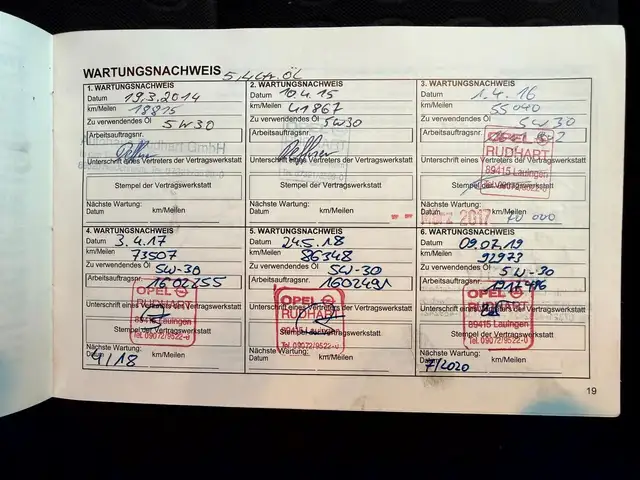 WARTUNGSNACHWEIS 5,4 Ltr. ÖL
1. WARTUNGSNACHWEIS
Datum 19.3.2014
km/Meilen 18815
Zu verwendendes Öl 5W30
Arbeitsauftragsnr.
Rudhart GmbH
Unterschrift eines Vertreters der Vertragswerkstatt
Stempel der Vertragswerkstatt
Nächste Wartung:
Datum km/Meilen
2. WARTUNGSNACHWEIS
Datum 10.4.15
km/Meilen 41867
Zu verwendendes Öl 5W30
Arbeitsauftragsnr.
Unterschrift eines Vertreters der Vertragswerkstatt
Stempel der Vertragswerkstatt
Nächste Wartung:
Datum km/Meilen
3. WARTUNGSNACHWEIS
Datum 1.4.16
km/Meilen 55040
Zu verwendendes Öl 5W30
Arbeitsauftragsnr.
OPEL
RUDHART
Unterschrift eines Vertreters der Vertragswerkstatt
89415 Lauingen
Stempel der Vertragswerkstatt
Nächste Wartung:
Datum März 2017 km/Meilen 000
4. WARTUNGSNACHWEIS
Datum 3.4.17
km/Meilen 73507
Zu verwendendes Öl 5W-30
Arbeitsauftragsnr. 1602255
OPEL
RUDHART
Unterschrift eines Vertreters der Vertragswerkstatt
89415 Lauingen
Stempel der Vertragswerkstatt
Tel. 09072/9522-0
Nächste Wartung:
Datum 4/18 km/Meilen
5. WARTUNGSNACHWEIS
Datum 24.5.18
km/Meilen 86348
Zu verwendendes Öl 5W-30
Arbeitsauftragsnr. 1602491
OPEL
RUDHART
Unterschrift eines Vertreters der Vertragswerkstatt
89415 Lauingen
Stempel der Vertragswerkstatt
Tel. 09072/9522-0
Nächste Wartung:
Datum km/Meilen
6. WARTUNGSNACHWEIS
Datum 09.07.19
km/Meilen 92973
Zu verwendendes Öl 5W-30
Arbeitsauftragsnr.
OPEL
RUDHART
Unterschrift eines Vertreters der Vertragswerkstatt
89415 Lauingen
Stempel der Vertragswerkstatt
Tel. 09072/9522-0
Nächste Wartung:
Datum 7/2020 km/Meilen
19